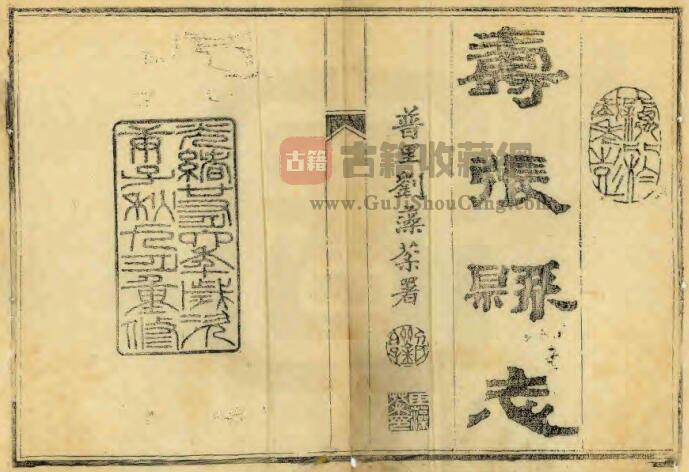 壽張縣志
普里劉藻棻署
光緒廿六年歲次
庚子秋九月重修
古籍
古籍收藏网
www.GuJiShouCang.com